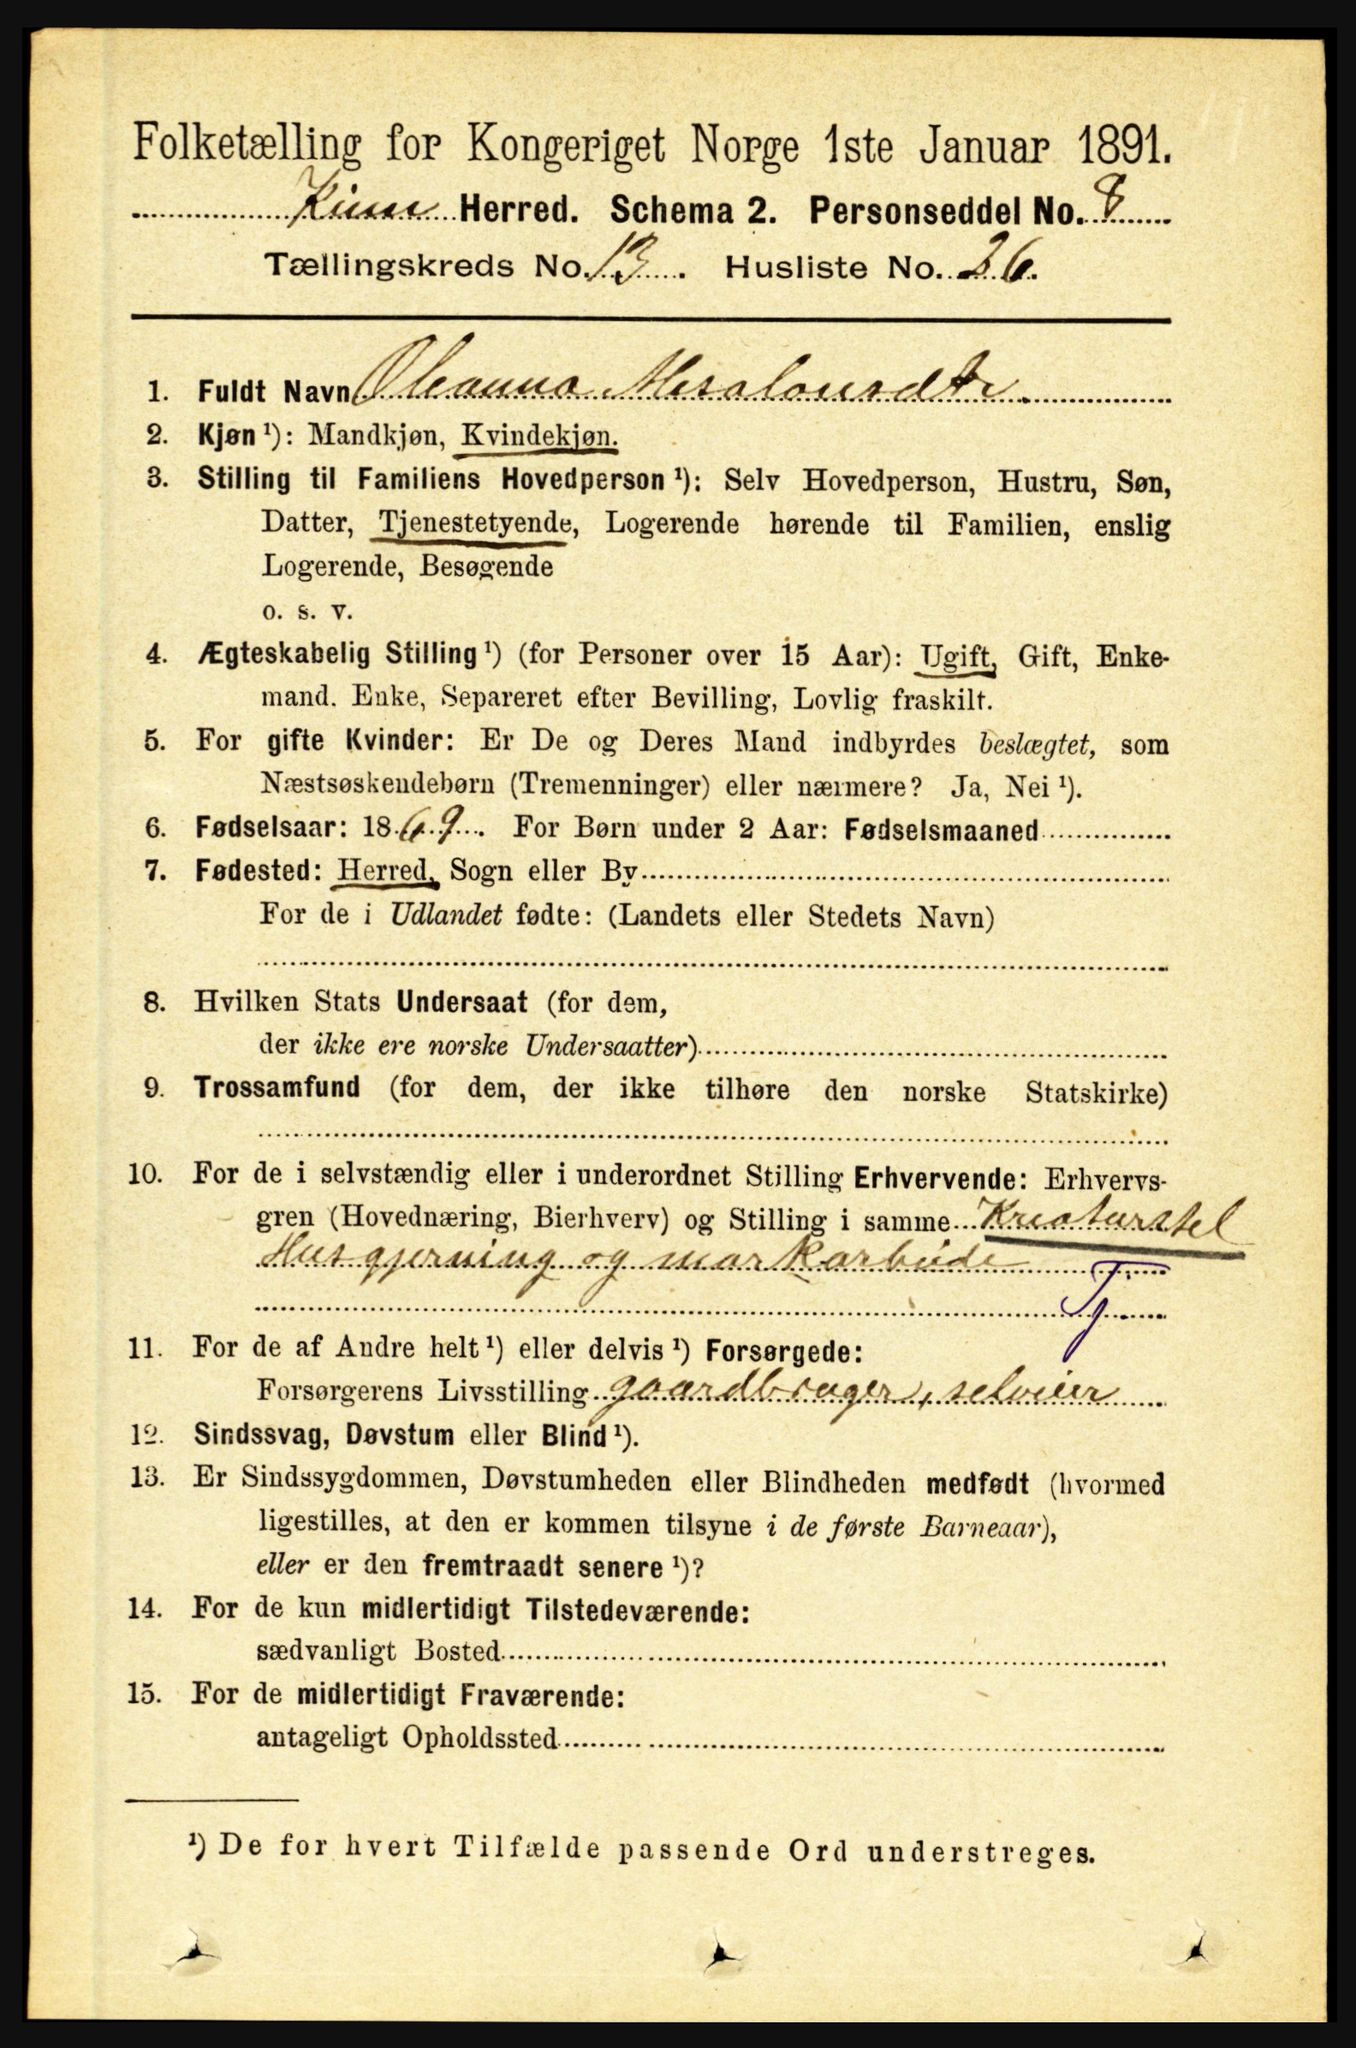 Folketælling for Kongeriget Norge 1ste Januar 1891.
Kinn Herred. Schema 2. Personseddel No. 8
Tællingskreds No. 13. Husliste No. 26.
1. Fuldt Navn Oleanna Absalonsdtr.
2. Kjøn ¹): Mandkjøn, Kvindekjøn.
3. Stilling til Familiens Hovedperson ¹): Selv Hovedperson, Hustru, Søn,
Datter, Tjenestetyende, Logerende hørende til Familien, enslig
Logerende, Besøgende
o. s. v.
4. Ægteskabelig Stilling ¹) (for Personer over 15 Aar): Ugift, Gift, Enke-
mand. Enke, Separeret efter Bevilling, Lovlig fraskilt.
5. For gifte Kvinder: Er De og Deres Mand indbyrdes beslægtet, som
Næstsøskendebørn (Tremenninger) eller nærmere? Ja, Nei ¹).
6. Fødselsaar: 1869. For Børn under 2 Aar: Fødselsmaaned
7. Fødested: Herred, Sogn eller By
For de i Udlandet fødte: (Landets eller Stedets Navn)
8. Hvilken Stats Undersaat (for dem,
der ikke ere norske Undersaatter)
9. Trossamfund (for dem, der ikke tilhøre den norske Statskirke)
10. For de i selvstændig eller i underordnet Stilling Erhvervende: Erhvervs-
gren (Hovednæring, Bierhverv) og Stilling i samme Kreaturstel
Husgjerning og markarbeide
Tj.
11. For de af Andre helt ¹) eller delvis ¹) Forsørgede:
Forsørgerens Livsstilling gaardbruger, selveier
12. Sindssvag, Døvstum eller Blind ¹).
13. Er Sindssygdommen, Døvstumheden eller Blindheden medfødt (hvormed
ligestilles, at den er kommen tilsyne i de første Barneaar),
eller er den fremtraadt senere ¹)?
14. For de kun midlertidigt Tilstedeværende:
sædvanligt Bosted
15. For de midlertidigt Fraværende:
antageligt Opholdssted
¹) De for hvert Tilfælde passende Ord understreges.